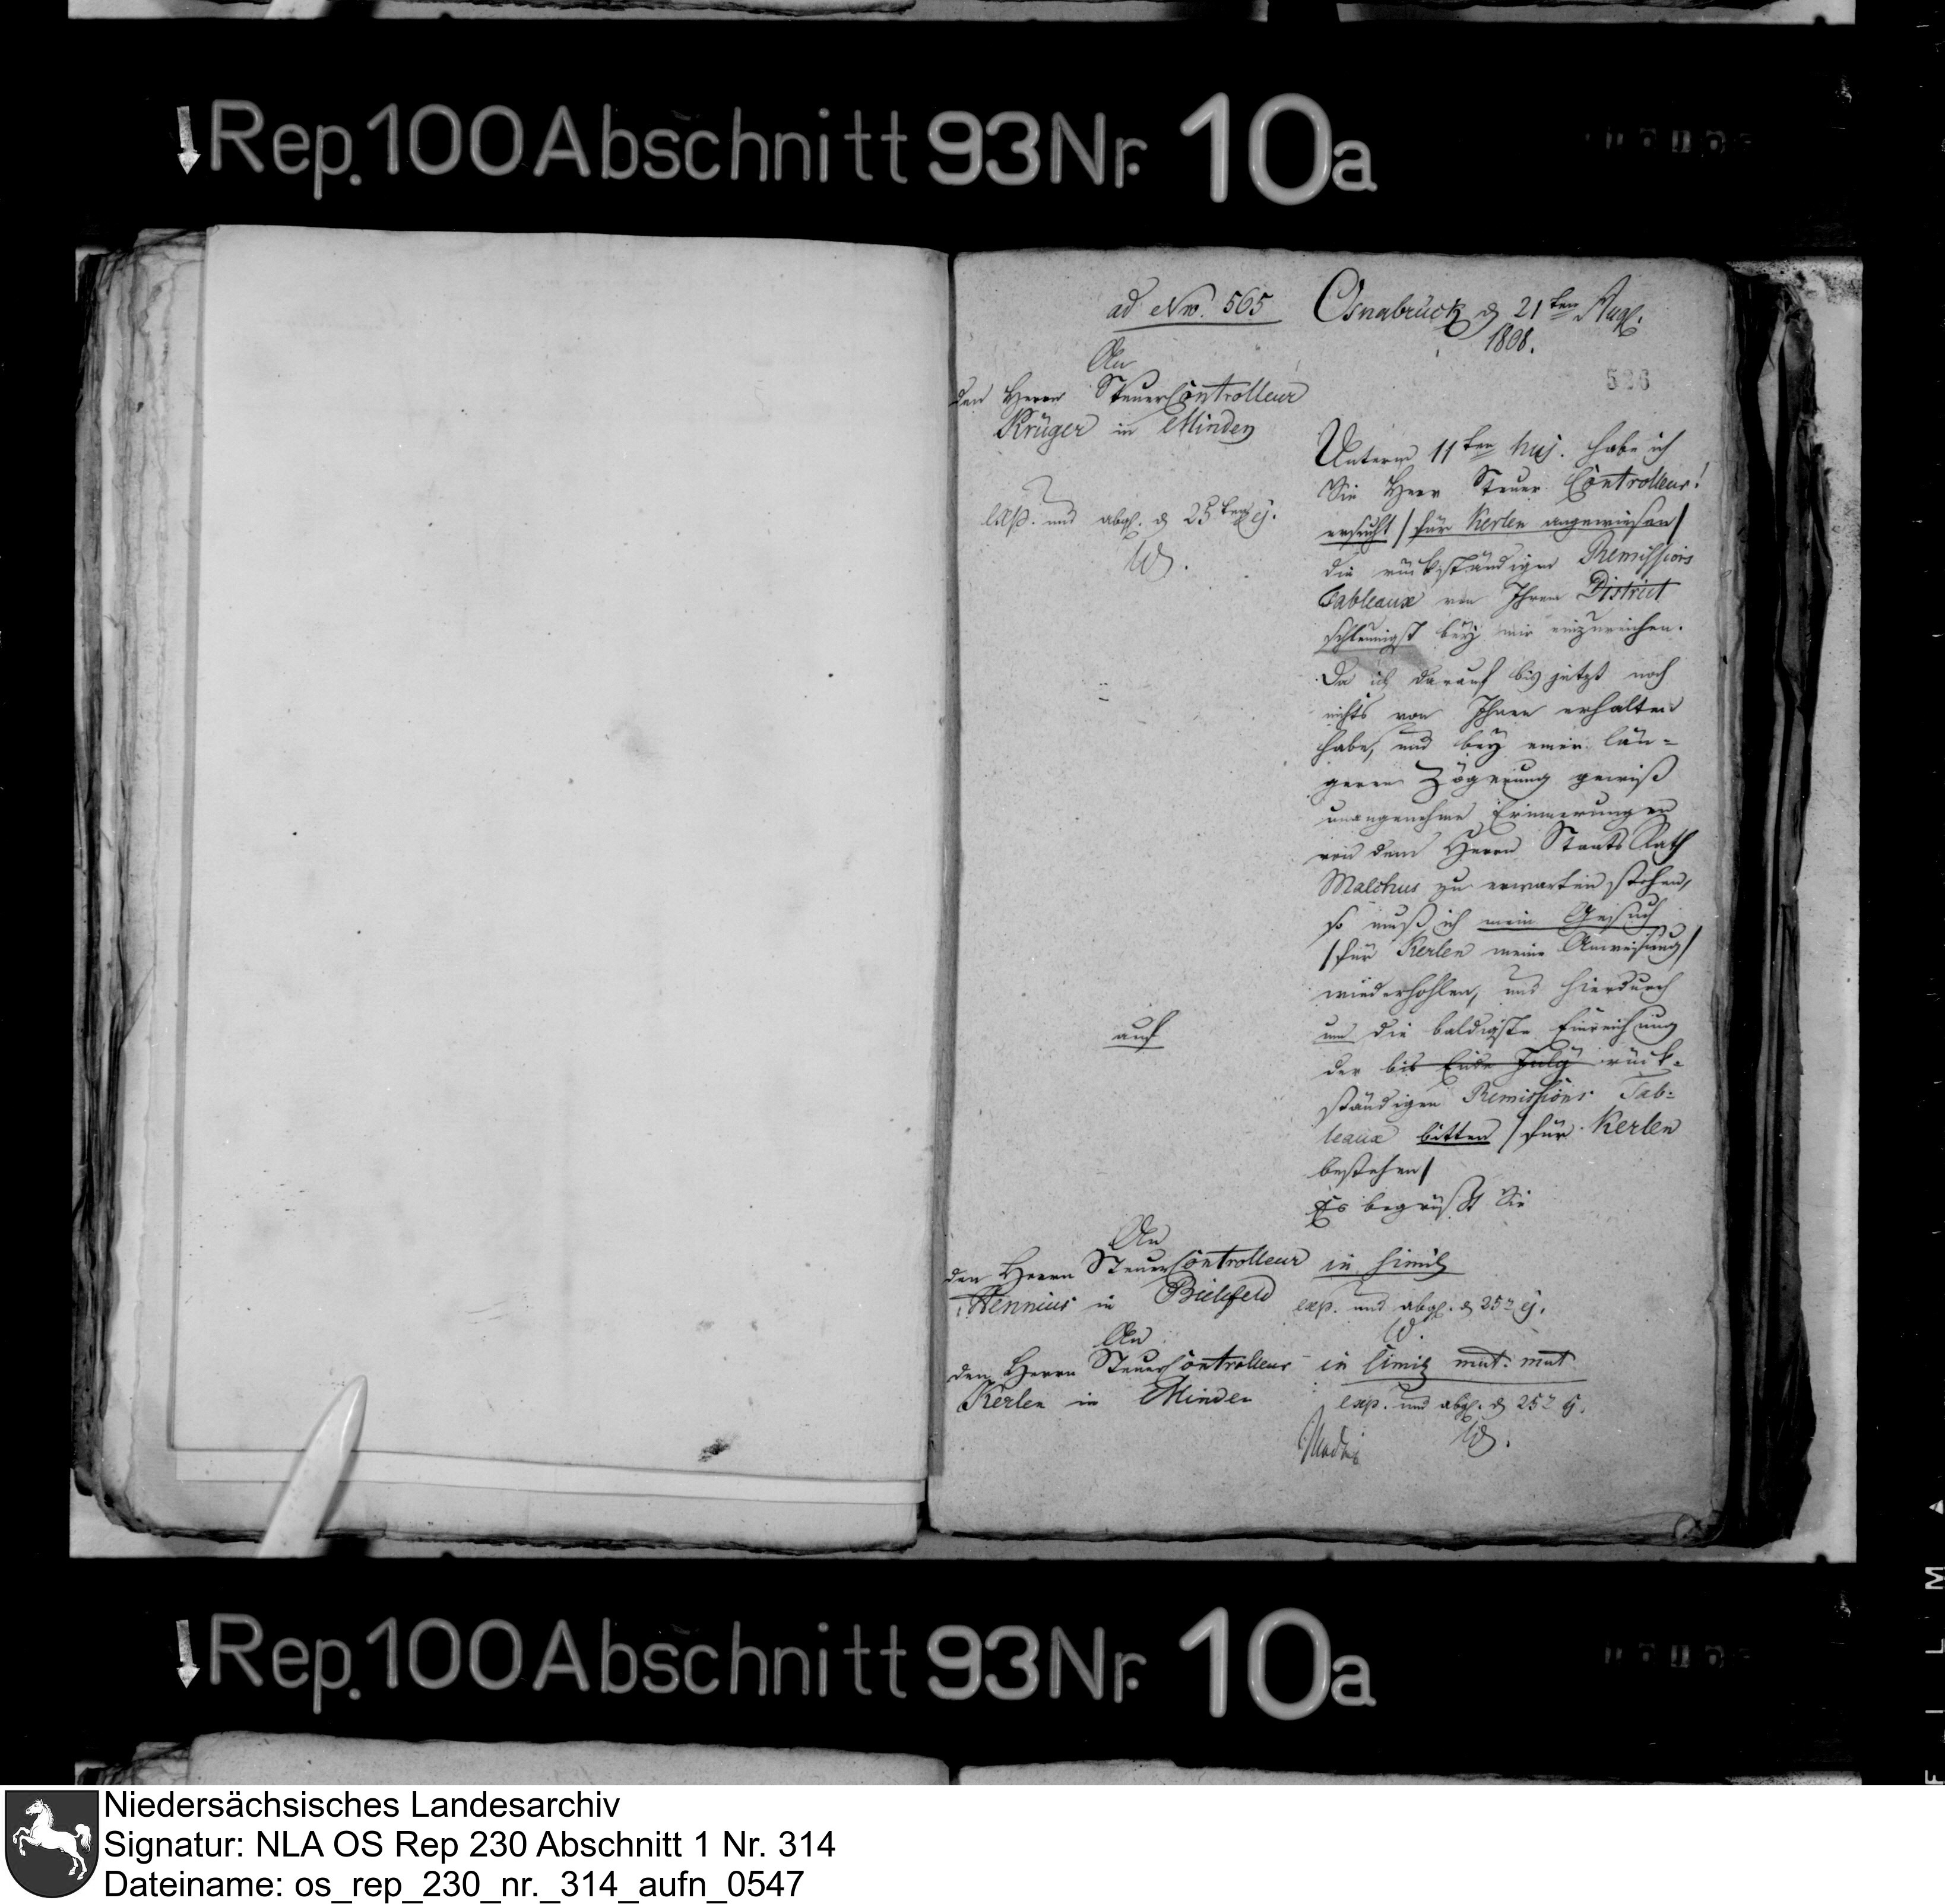 Rep. 100 Abschnitt 93 Nr. 10a
ad No. 565
Osnabrück d 21ten Aug.
1808.
526
An
den Herrn SteuerControlleur
Krüger in Minden
exp. und abgs. d 25ten ej.
W.
Unterm 11ten huj. habe ich
Sie Herr Steuer Controlleur!
ersucht /für Kerlen angewiesen/
die rückständigen Remissions
Tableaux von Ihrem District
schleunigst bey mir einzureichen.
Da ich darauf bis jetzt noch
nichts von Ihnen erhalten
habe, und bey einer län-
geren Zögerung gewiß
unangenehme Erinnerungen
von dem Herrn Staats Rath
Malchus zu erwarten stehen,
so muß ich mein Gesuch
/für Kerlen meine Anweisung/
wiederhohlen, und hierdurch
auf
um die baldigste Einreichung
der bis Ende July rück-
ständigen Remissions Tab-
leaux bitten /für Kerlen
bestehen/
Es begrüßt Sie
An
den Herrn SteuerControlleur
Hennius in Bielefeld
in simili
exp. und abgs. d 25t ej.
W.
An
den Herrn SteuerControlleur
Kerlen in Minden
in simili mut. mut
exp. und abgs. d 25t ej.
W.
Rep. 100 Abschnitt 93 Nr. 10a
FILM
Niedersächsisches Landesarchiv
Signatur: NLA OS Rep 230 Abschnitt 1 Nr. 314
Dateiname: os_rep_230_nr._314_aufn_0547